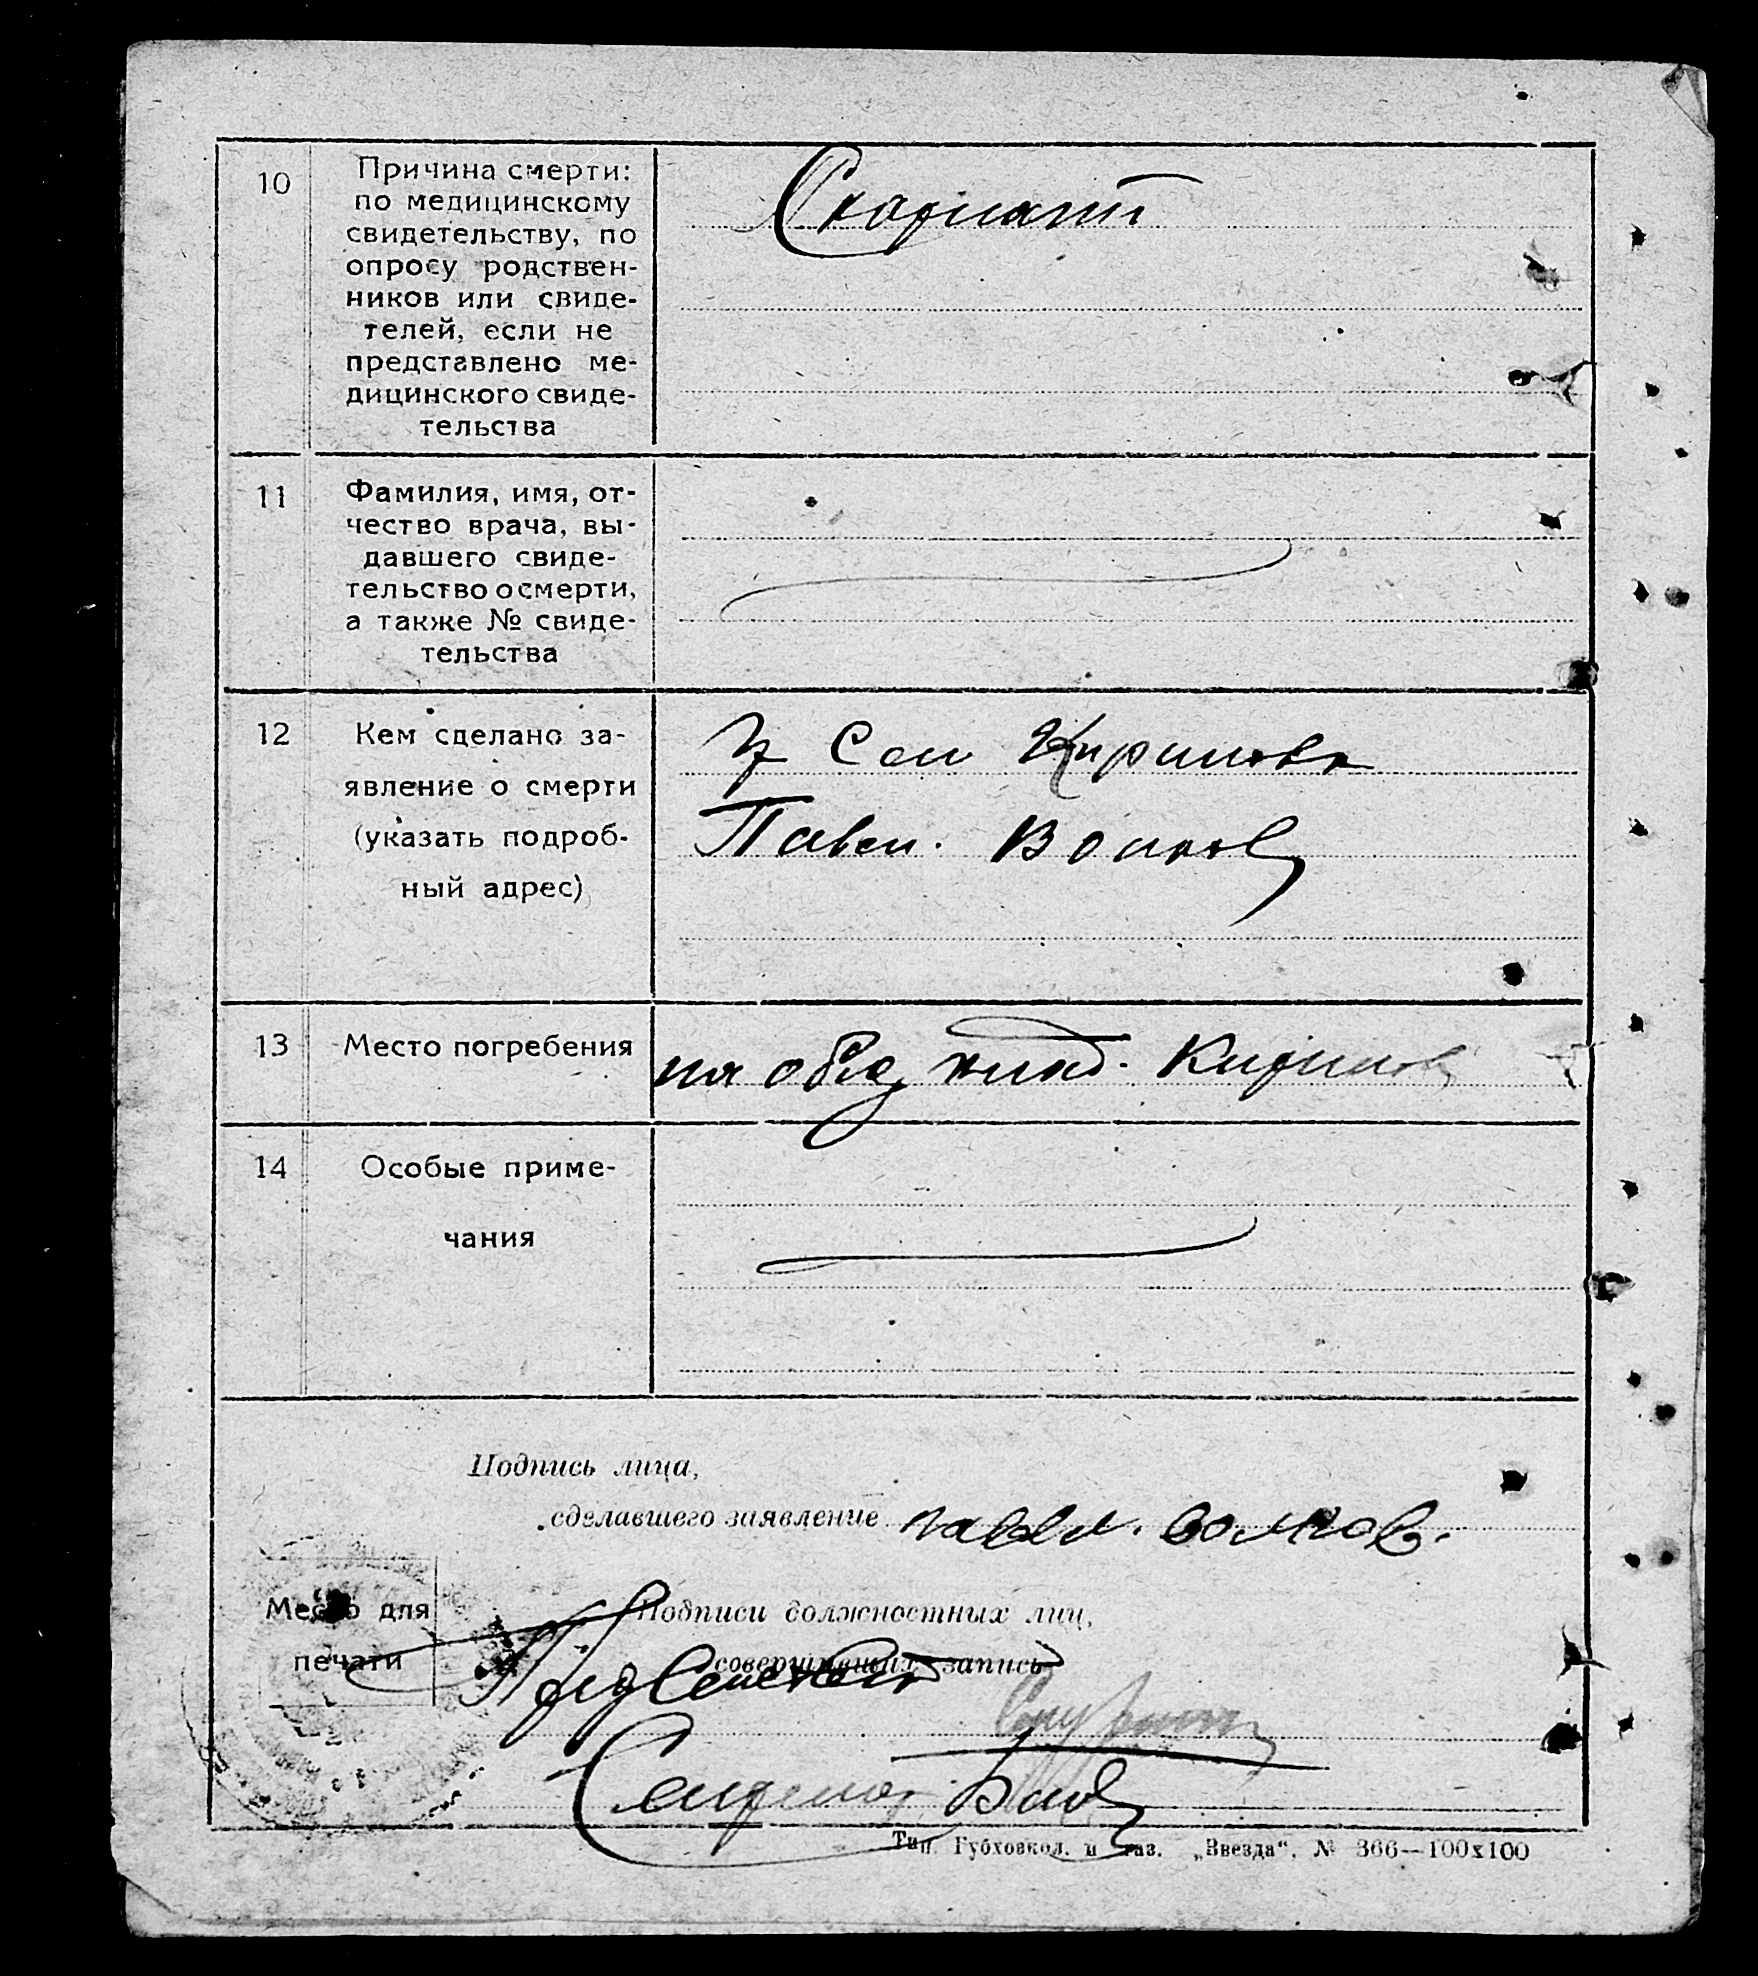 10
Причина смерти:
по медицинскому
свидетельству, по
опросу родствен-
ников или свиде-
телей, если не
представлено ме-
дицинского свиде-
тельства
Скорлат
11
Фамилия, имя, от-
чество врача, вы-
давшего свиде-
тельство о смерти,
а также № свиде-
тельства
12
Кем сделано за-
явление о смерти
(указать подроб-
ный адрес)
Сел
Павел. Волков
13
Место погребения
на общ клад.
14
Особые приме-
чания
Подпись лица,
сделавшего заявление павел. волков.
Место для
печати
Подписи должностных лиц,
совершивших запись
Пред Сельсовет
Секретарь
Тип. Губховкол. и газ. „Звезда“. № 366—100х100